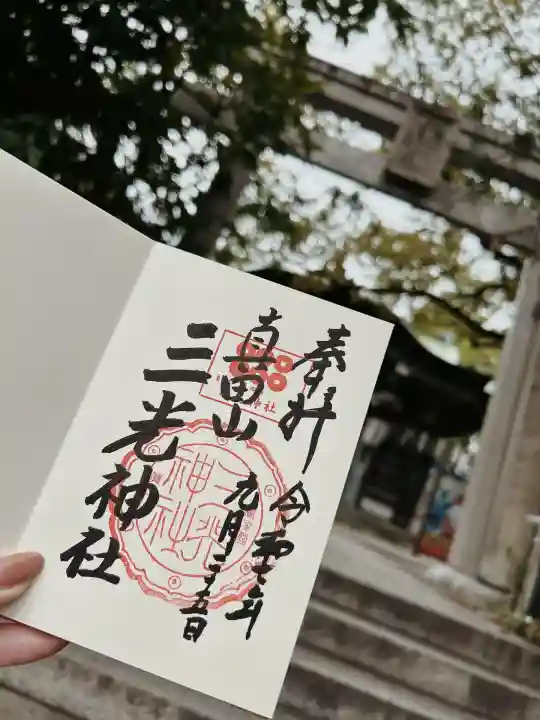 奉拝
令和七年
九月二十五日
真田山
三光神社
三光神社
神社